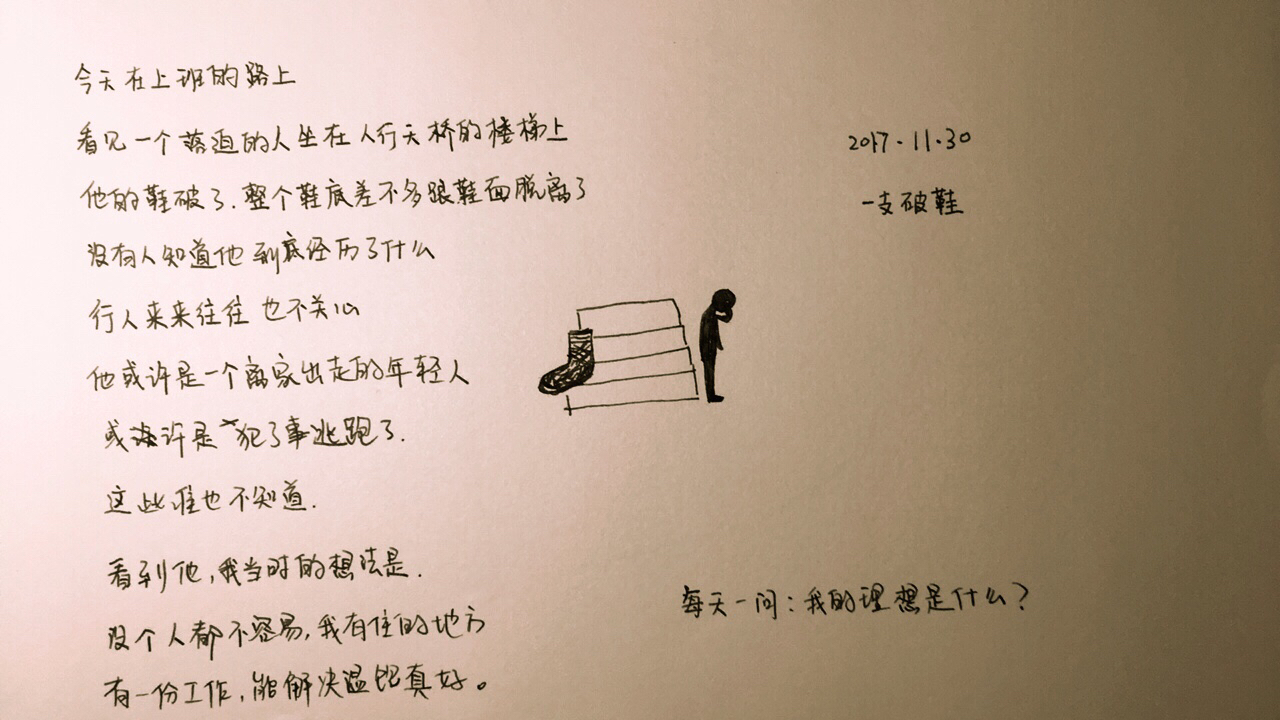 今天在上班的路上
看见一个落迫的人坐在人行天桥的楼梯上
他的鞋破了.整个鞋底差不多跟鞋面脱离了
没有人知道他到底经历了什么
行人来来往往 也不关心
他或许是一个离家出走的年轻人
或许是犯了事逃跑了.
这些谁也不知道.
看到他,我当时的想法是.
没个人都不容易,我有住的地方
有一份工作,能解决温饱真好。
2017.11.30
一支破鞋
每天一问:我的理想是什么?